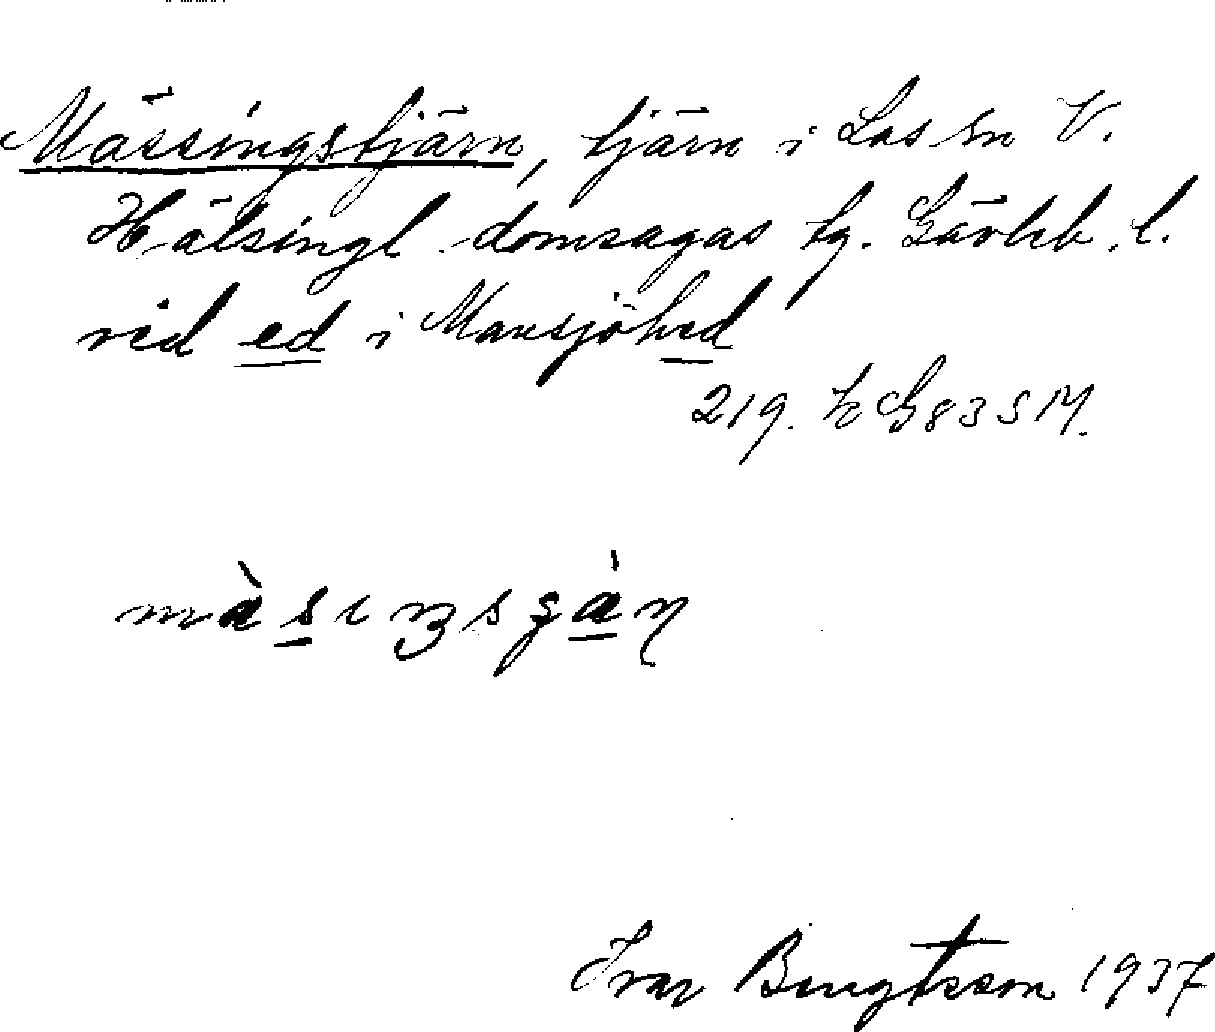 Mässingstjärn, tjärn i Los sn V.
Hälsingl. domsagas tg. Gävleb. l.
vid ed i Mansjöhed
219. K G 83 S M.
Ivar Bengtsson 1937